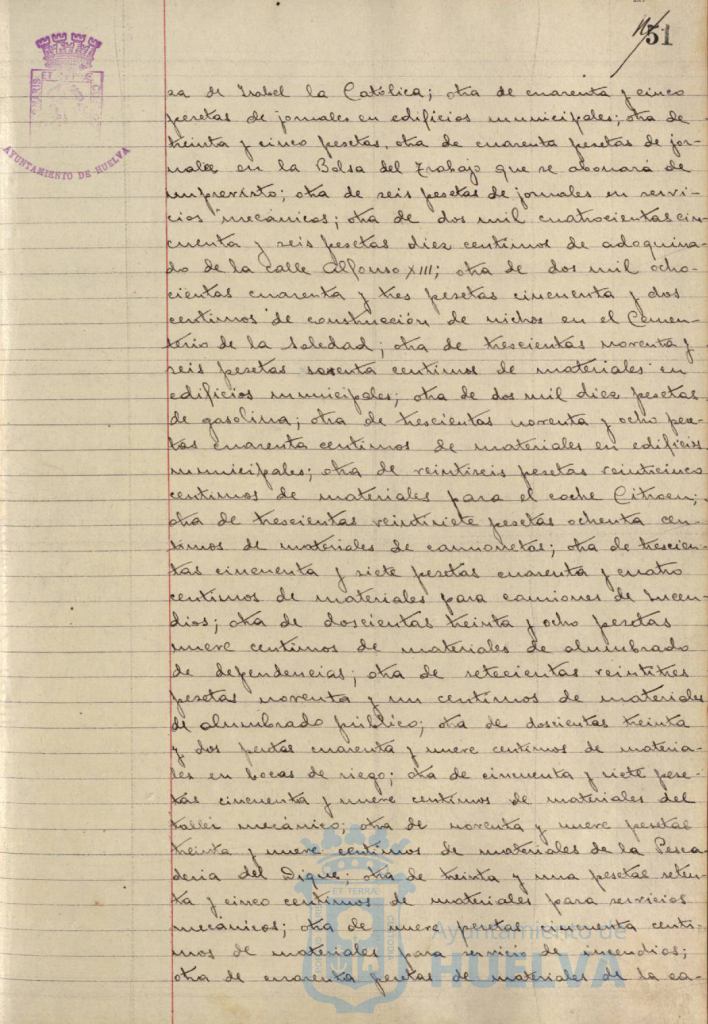 51
AYUNTAMIENTO DE HUELVA
za de Isabel la Católica; otra de cuarenta y cinco
pesetas de jornales en edificios municipales; otra de
treinta y cinco pesetas, otra de cuarenta pesetas de jor-
nales en la Bolsa del Trabajo que se abonará de
imprevisto; otra de seis pesetas de jornales en servi-
cios mecánicos; otra de dos mil cuatrocientas cin-
cuenta y seis pesetas diez centimos de adoquina-
do de la calle Alfonso XIII; otra de dos mil ocho-
cientas cuarenta y tres pesetas cincuenta y dos
centimos de construcción de nichos en el Cemen-
terio de la Soledad; otra de trescientas noventa y
seis pesetas centimos de materiales en
edificios municipales; otra de dos mil diez pesetas
de gasolina; otra de trescientas noventa y ocho pese-
tas cuarenta centimos de materiales en edificios
municipales; otra de veintiseis pesetas veinticinco
centimos de materiales para el coche Citroen;
otra de trescientas veintisiete pesetas ochenta cen-
timos de materiales de camionetas; otra de trescien-
tas cincuenta y siete pesetas cuarenta y cuatro
centimos de materiales para camiones de Incen-
dios; otra de doscientas treinta y ocho pesetas
nueve centimos de materiales de alumbrado
de dependencias; otra de setecientas veintitres
pesetas noventa y un centimos de materiales
de alumbrado público; otra de doscientas treinta
y dos pesetas cuarenta y nueve centimos de materia-
les en bocas de riego; otra de cincuenta y siete pese-
tas cincuenta y nueve centimos de materiales del
taller mecánico; otra de noventa y nueve pesetas
treinta y nueve centimos de materiales de la Pesca-
deria del Dique; otra de treinta y una pesetas seten-
ta y cinco centimos de materiales para servicios
mecanicos; otra de nueve pesetas cincuenta centi-
mos de materiales para servicio de incendios;
otra de cuarenta pesetas de materiales de la ca-
ET TERRÆ
Ayuntamiento de
HUELVA